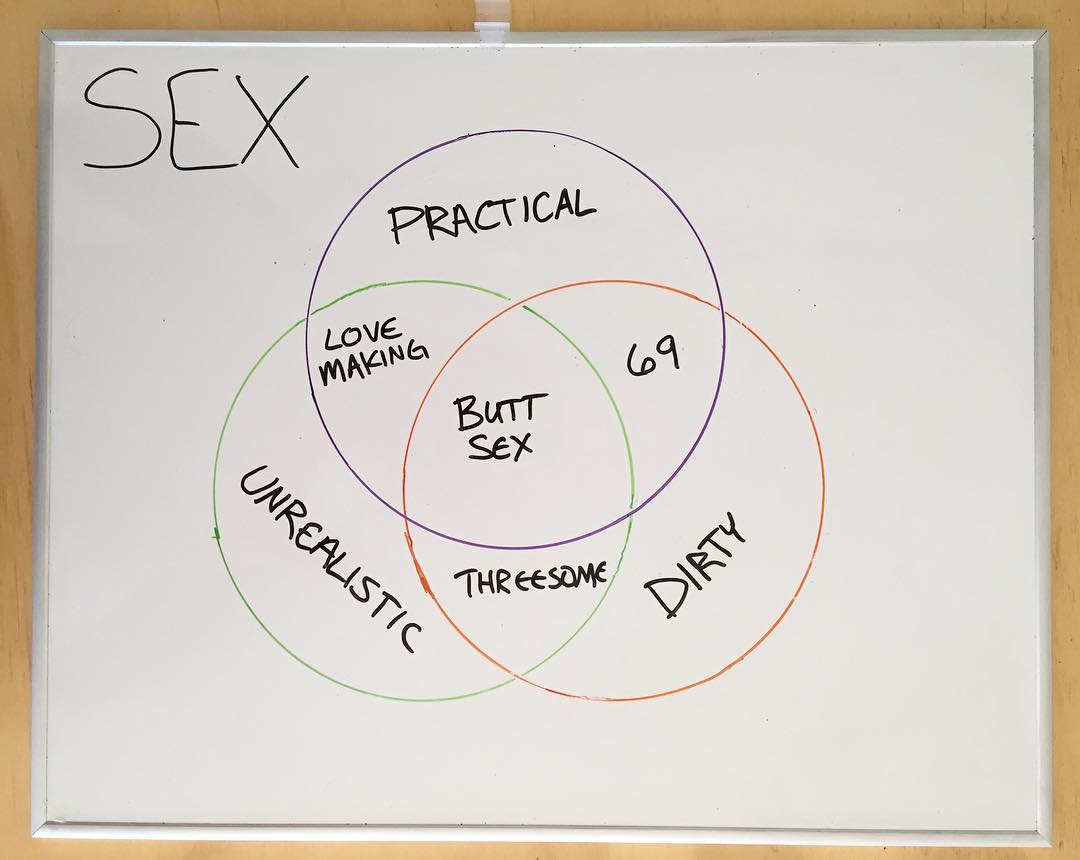 SEX
PRACTICAL
LOVE
MAKING
69
BUTT
SEX
UNREALISTIC
THREESOME
DIRTY